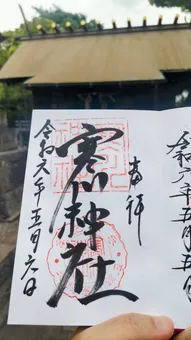 令和六年五月五日
奉拝
寒川神社
令和六年五月六日